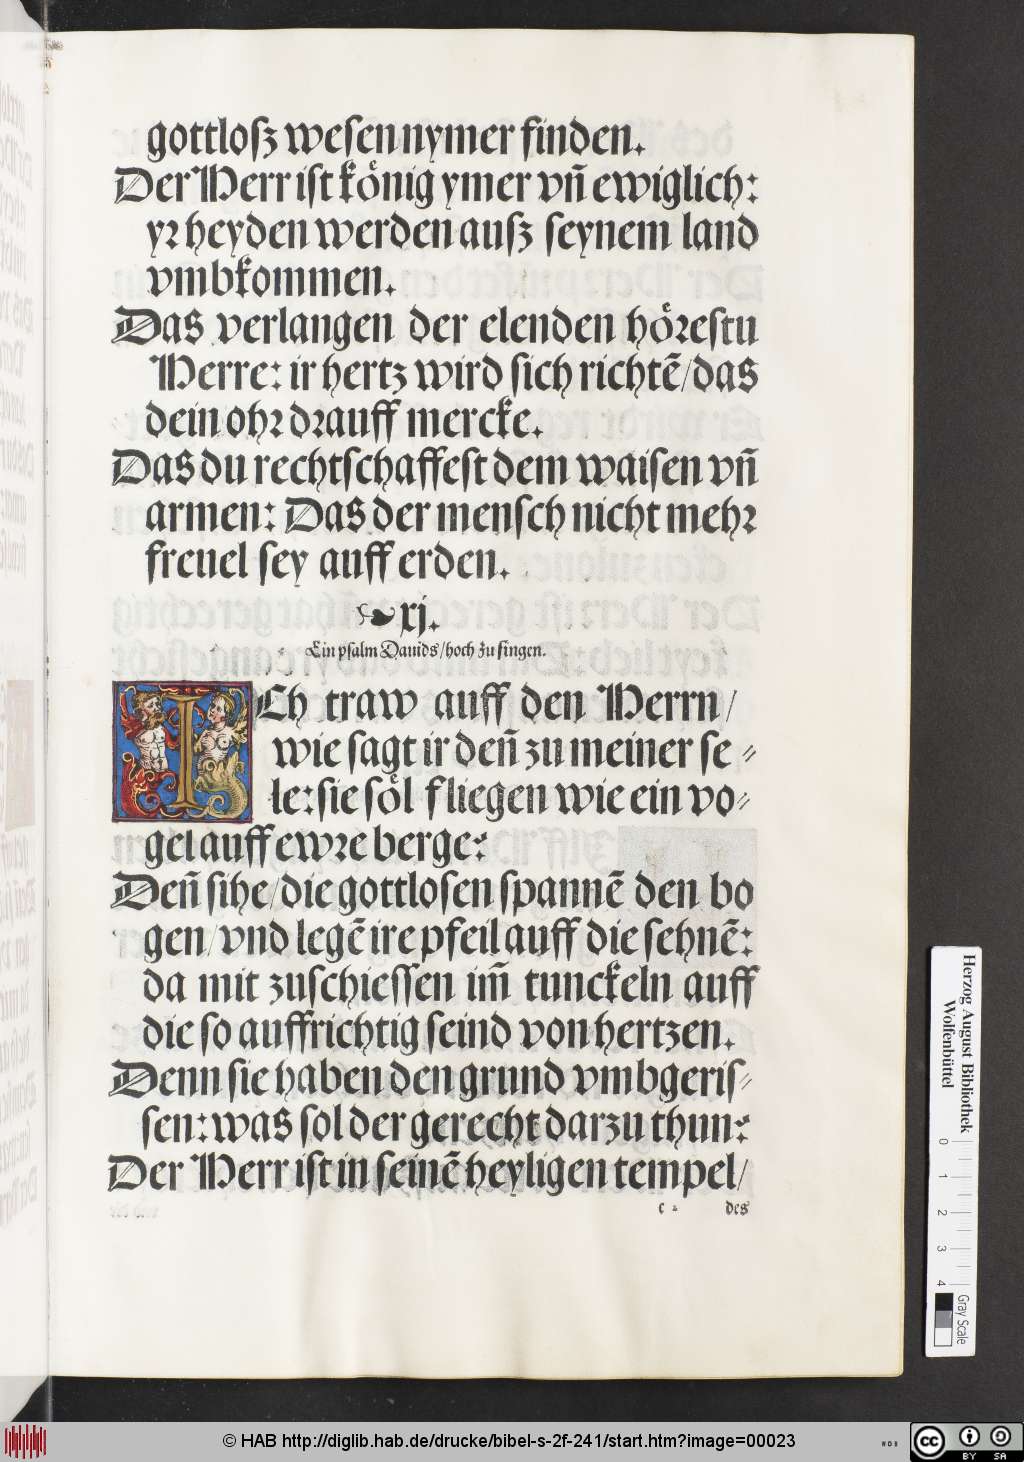 gottloſz weſen nymer finden.
Der Herr iſt koͤnig ymer vn̄ ewiglich:
yr heyden werden auſz ſeynem land
vmbkommen.
Das verlangen der elenden hoͤreſtu
Herre: ir hertz wird ſich richtē/das
dein ohr drauff mercke.
Das du rechtſchaffeſt dem waiſen vn̄
armen: Das der menſch nicht mehr
freuel ſey auff erden.
xj.
Ein pſalm Dauids/hoch zu ſingen.
ICh traw auff den Herrn/
wie ſagt ir den̄ zu meiner ſe⸗
le: ſie ſoͤl fliegen wie ein vo⸗
gel auff ewre berge:
Den̄ ſihe/die gottloſen ſpannē den bo
gen/vnd legē ire pfeil auff die ſehnē:
da mit zuſchieſſen im̄ tunckeln auff
die ſo auffrichtig ſeind von hertzen.
Denn ſie haben den grund vmbgeriſ⸗
ſen: was ſol der gerecht darzu thun:
Der Herr iſt in ſeinē heyligen tempel/
c des
Herzog August Bibliothek
Wolfenbüttel
0 1 2 3 4
Gray Scale
© HAB http://diglib.hab.de/drucke/bibel-s-2f-241/start.htm?image=00023
WDB
cc BY SA